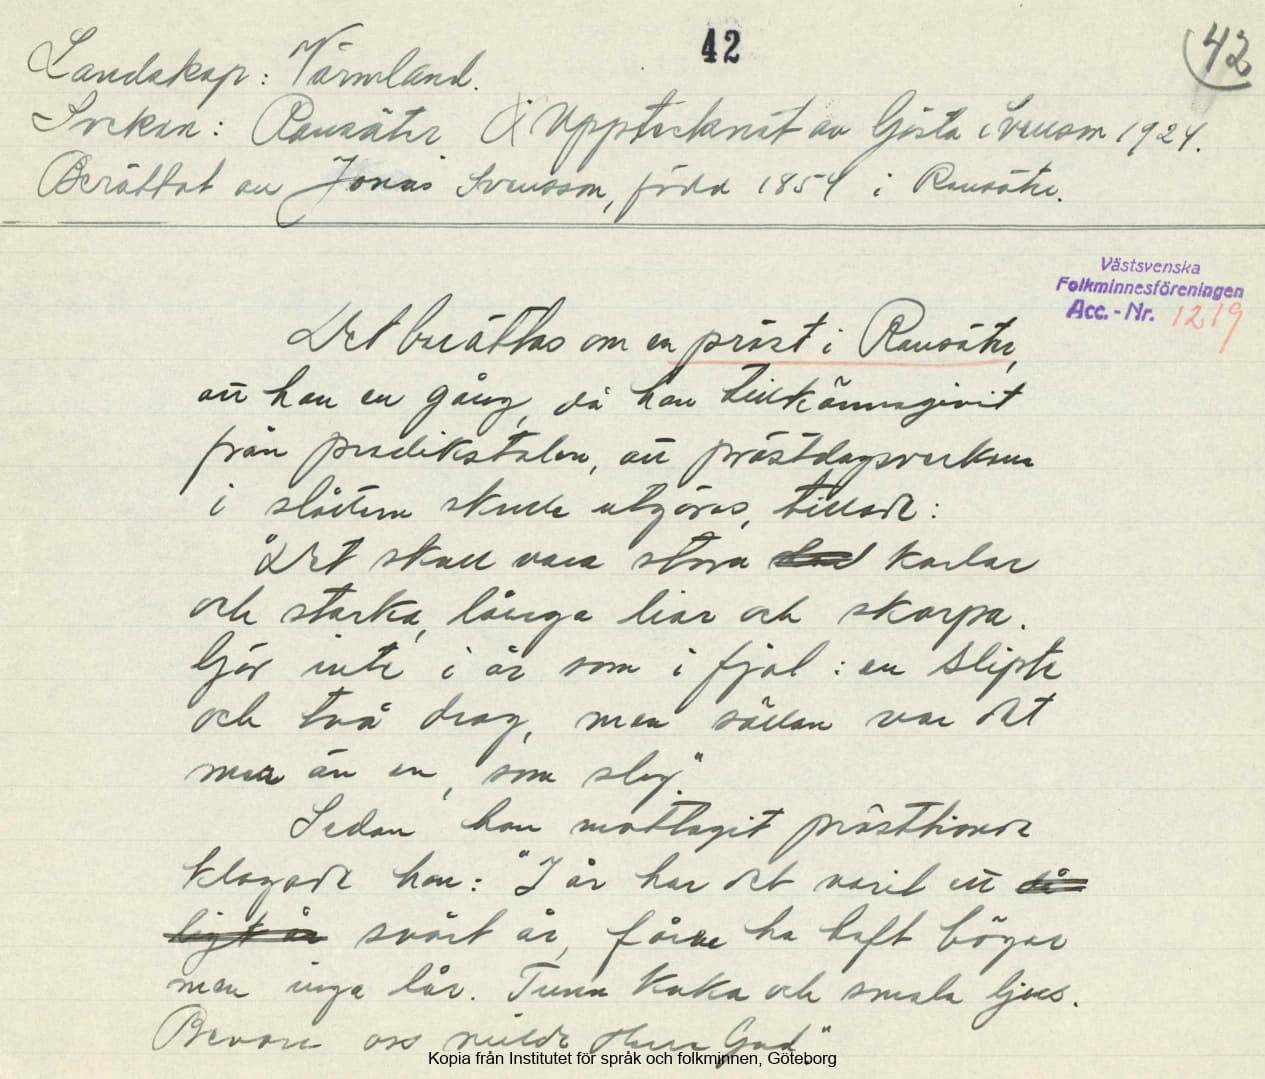 42
42
Landskap: Värmland.
Socken: Ransäter Upptecknat av Gösta Svenson 1924.
Berättat av Jonas Svensson, född 1854 i Ransäter.
Västsvenska
Folkminnesföreningen
Acc.-Nr. 1219
Det berättas om en präst i Ransäter,
att han en gång, då han tillkännagivit
från predikstolen, att prästdagsverkena
i slåttern skulle utgöras, tillade:
"Det skall vara stora karlar
och starka, långa liar och skarpa.
Gör inte i år som i fjol: en slipte
och två drog, men sällan var det
mer än en, som slog."
Sedan han mottagit prästtionde
klagade han: "I år har det varit ett då-
ligt år svårt år, fåren ha haft bogar
men inga lår. Tunna kakor och smala ljus.
Bevare oss milde Herre Gud."
Kopia från Institutet för språk och folkminnen, Göteborg